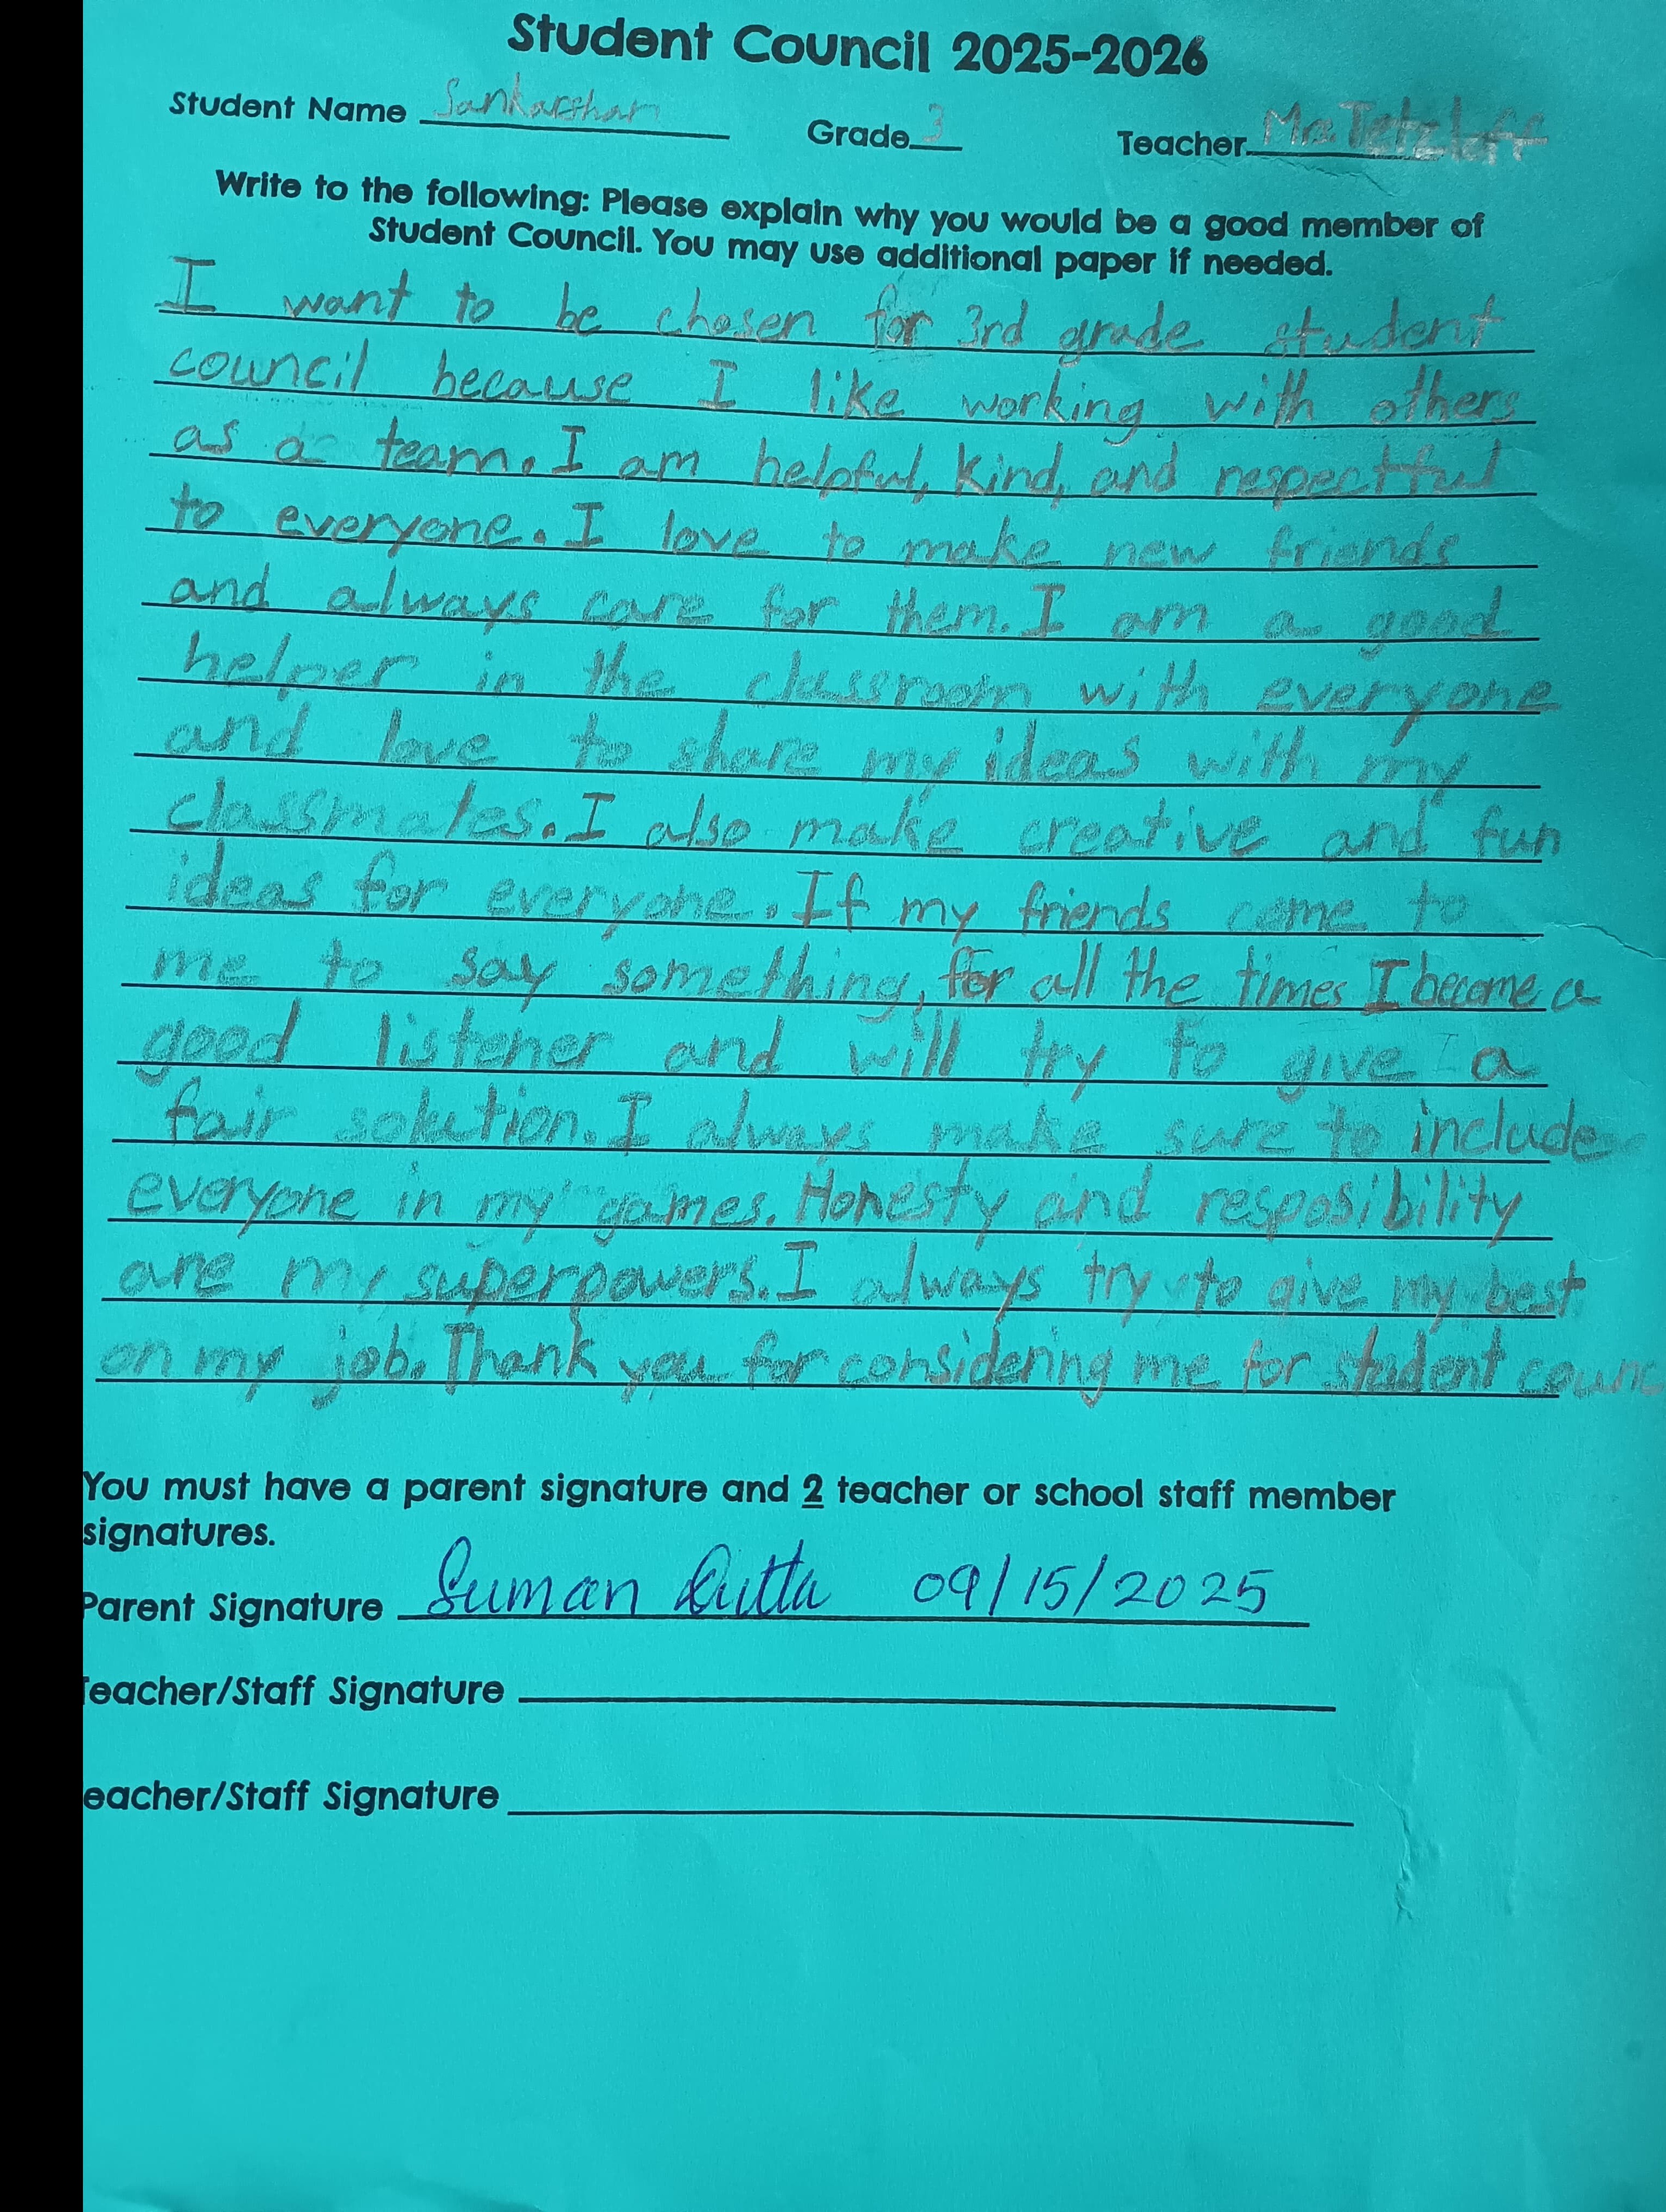 Student Council 2025-2026
Student Name Sankarshan Grade 3 Teacher Mrs. Tetzloff
Write to the following: Please explain why you would be a good member of
Student Council. You may use additional paper if needed.
I want to be chosen for 3rd grade student
council because I like working with others
as a team. I am helpful, kind, and respectful
to everyone. I love to make new friends
and always care for them. I am a good
helper in the classroom with everyone
and love to share my ideas with my
classmates. I also make creative and fun
ideas for everyone. If my friends come to
me to say something, for all the times I become a
good listener and will try to give a
fair solution. I always make sure to include
everyone in my games. Honesty and resposibility
are my superpowers. I always try to give my best
on my job. Thank you for considering me for student counc
You must have a parent signature and 2 teacher or school staff member
signatures.
Parent Signature Suman Dutta 09/15/2025
Teacher/Staff Signature
eacher/Staff Signature